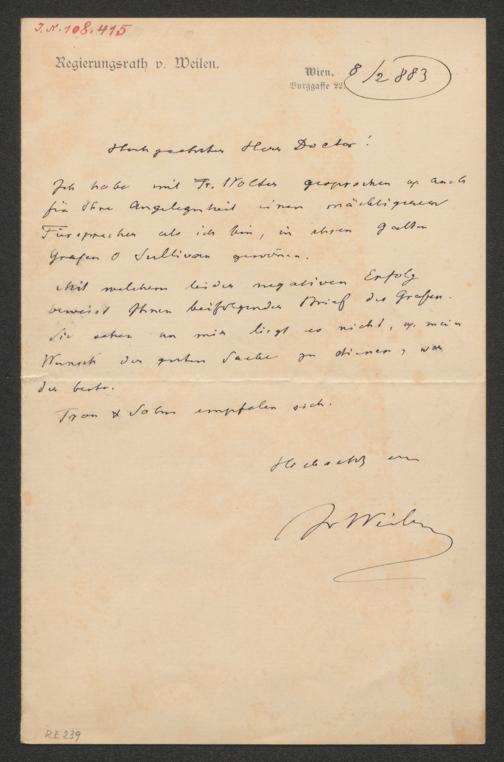 J.N. 108.415
Regierungsrath v. Weilen.
Wien, 8/2 883
Burggasse 22.
Hochgeehrter Herr Doctor!
Ich habe mit Fr. Wolter gesprochen u. auch
für Ihre Angelegenheit einen mächtigeren
Fürsprecher als ich bin, in ihrem Gatten
Grafen O Sullivan gewonnen.
Mit welchem leider negativen Erfolg
beweist Ihnen beifolgender Brief des Grafen.
Sie sehen an mir liegt es nicht, u. mein
Wunsch der guten Sache zu dienen, war
der beste.
Frau & Sohn empfelen sich.
Hochachtd
Jv Weilen
RE 239